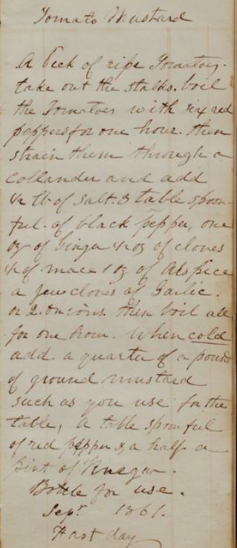 Tomato Mustard
A Peck of ripe Tomatoes.
take out the stalks. boil
the Tomatoes with six red
peppers for one hour. then
strain them through a
Collander and add
1/2 lb of Salt. 3 table spoon
ful. of black pepper, one
oz of Ginger 1/2 oz of cloves
1/2 of mace 1 oz of Allspice
a few cloves of Garlic.
or 2. onions. then boil all
for one hour. When cold
add a quarter of a pound
of ground mustard
such as you use for the
table, a table spoonful
of red pepper & a half a
pint of Vinegar.
Bottle for use.
Sepr. 1861.
Fast day